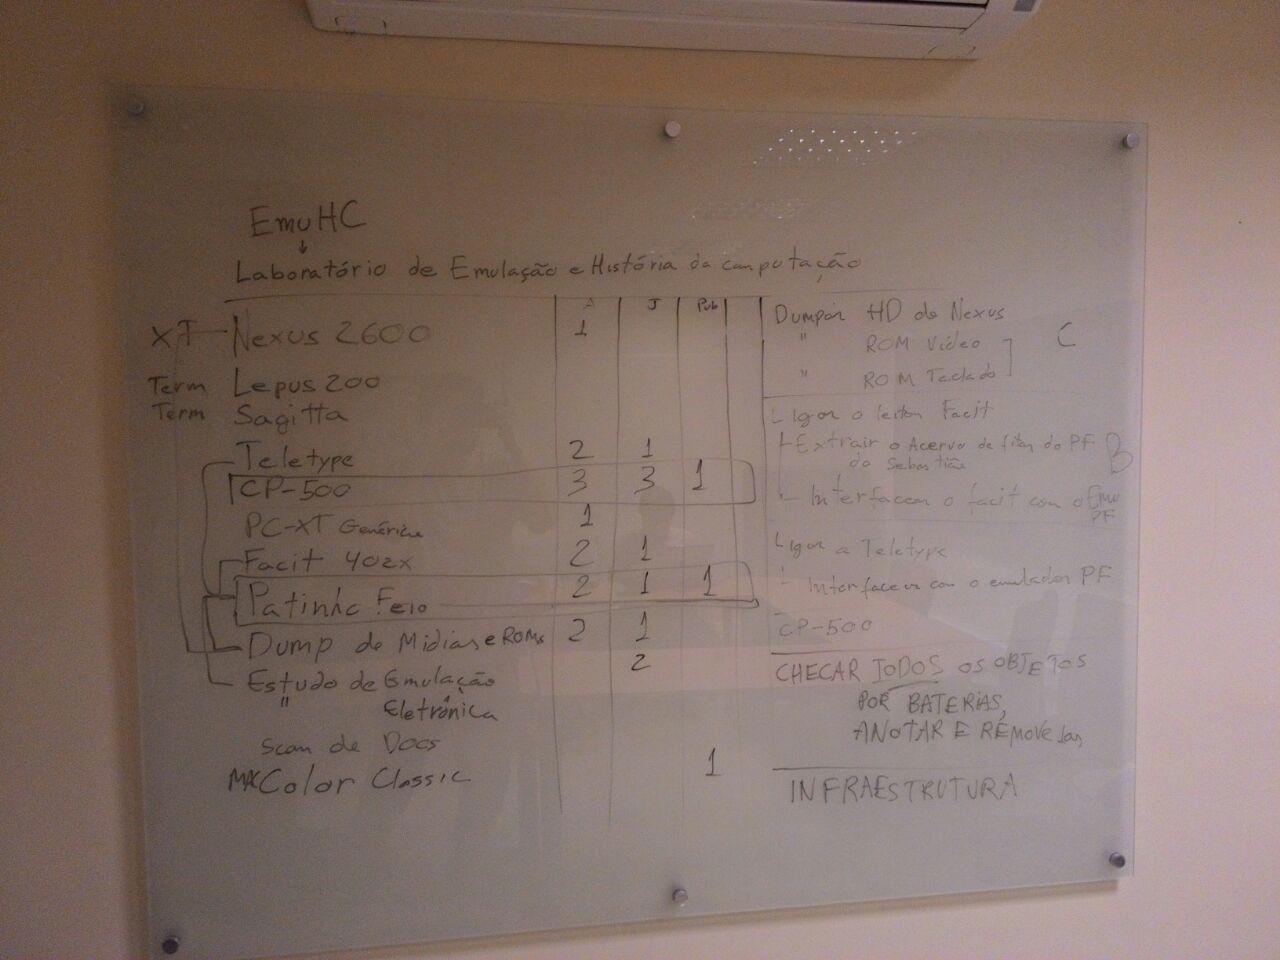 EmuHC
↓
Laboratório de Emulação e História da computação
A J Pub
XT Nexus 2600 1
Term Lepus 200
Term Sagitta
Teletype 2 1
CP-500 3 3 1
PC-XT Genérico 1
Facit 402x 2 1
Patinho Feio 2 1 1
Dump de Mídias e ROMs 2 1
Estudo de Emulação 2
" Eletrônica
Scan de Docs
MAC Color Classic 1
Dumpar HD do Nexus
" ROM Vídeo C
" ROM Teclado
Ligar o leitor Facit
Extrair o Acervo de fitas do PF B
do Sebastião
Interfacear o facit com o Emu
PF
Ligar a Teletype
Interfacear com o emulador PF
CP-500
CHECAR TODOS OS OBJETOS
POR BATERIAS,
ANOTAR E REMOVE-las
INFRAESTRUTURA